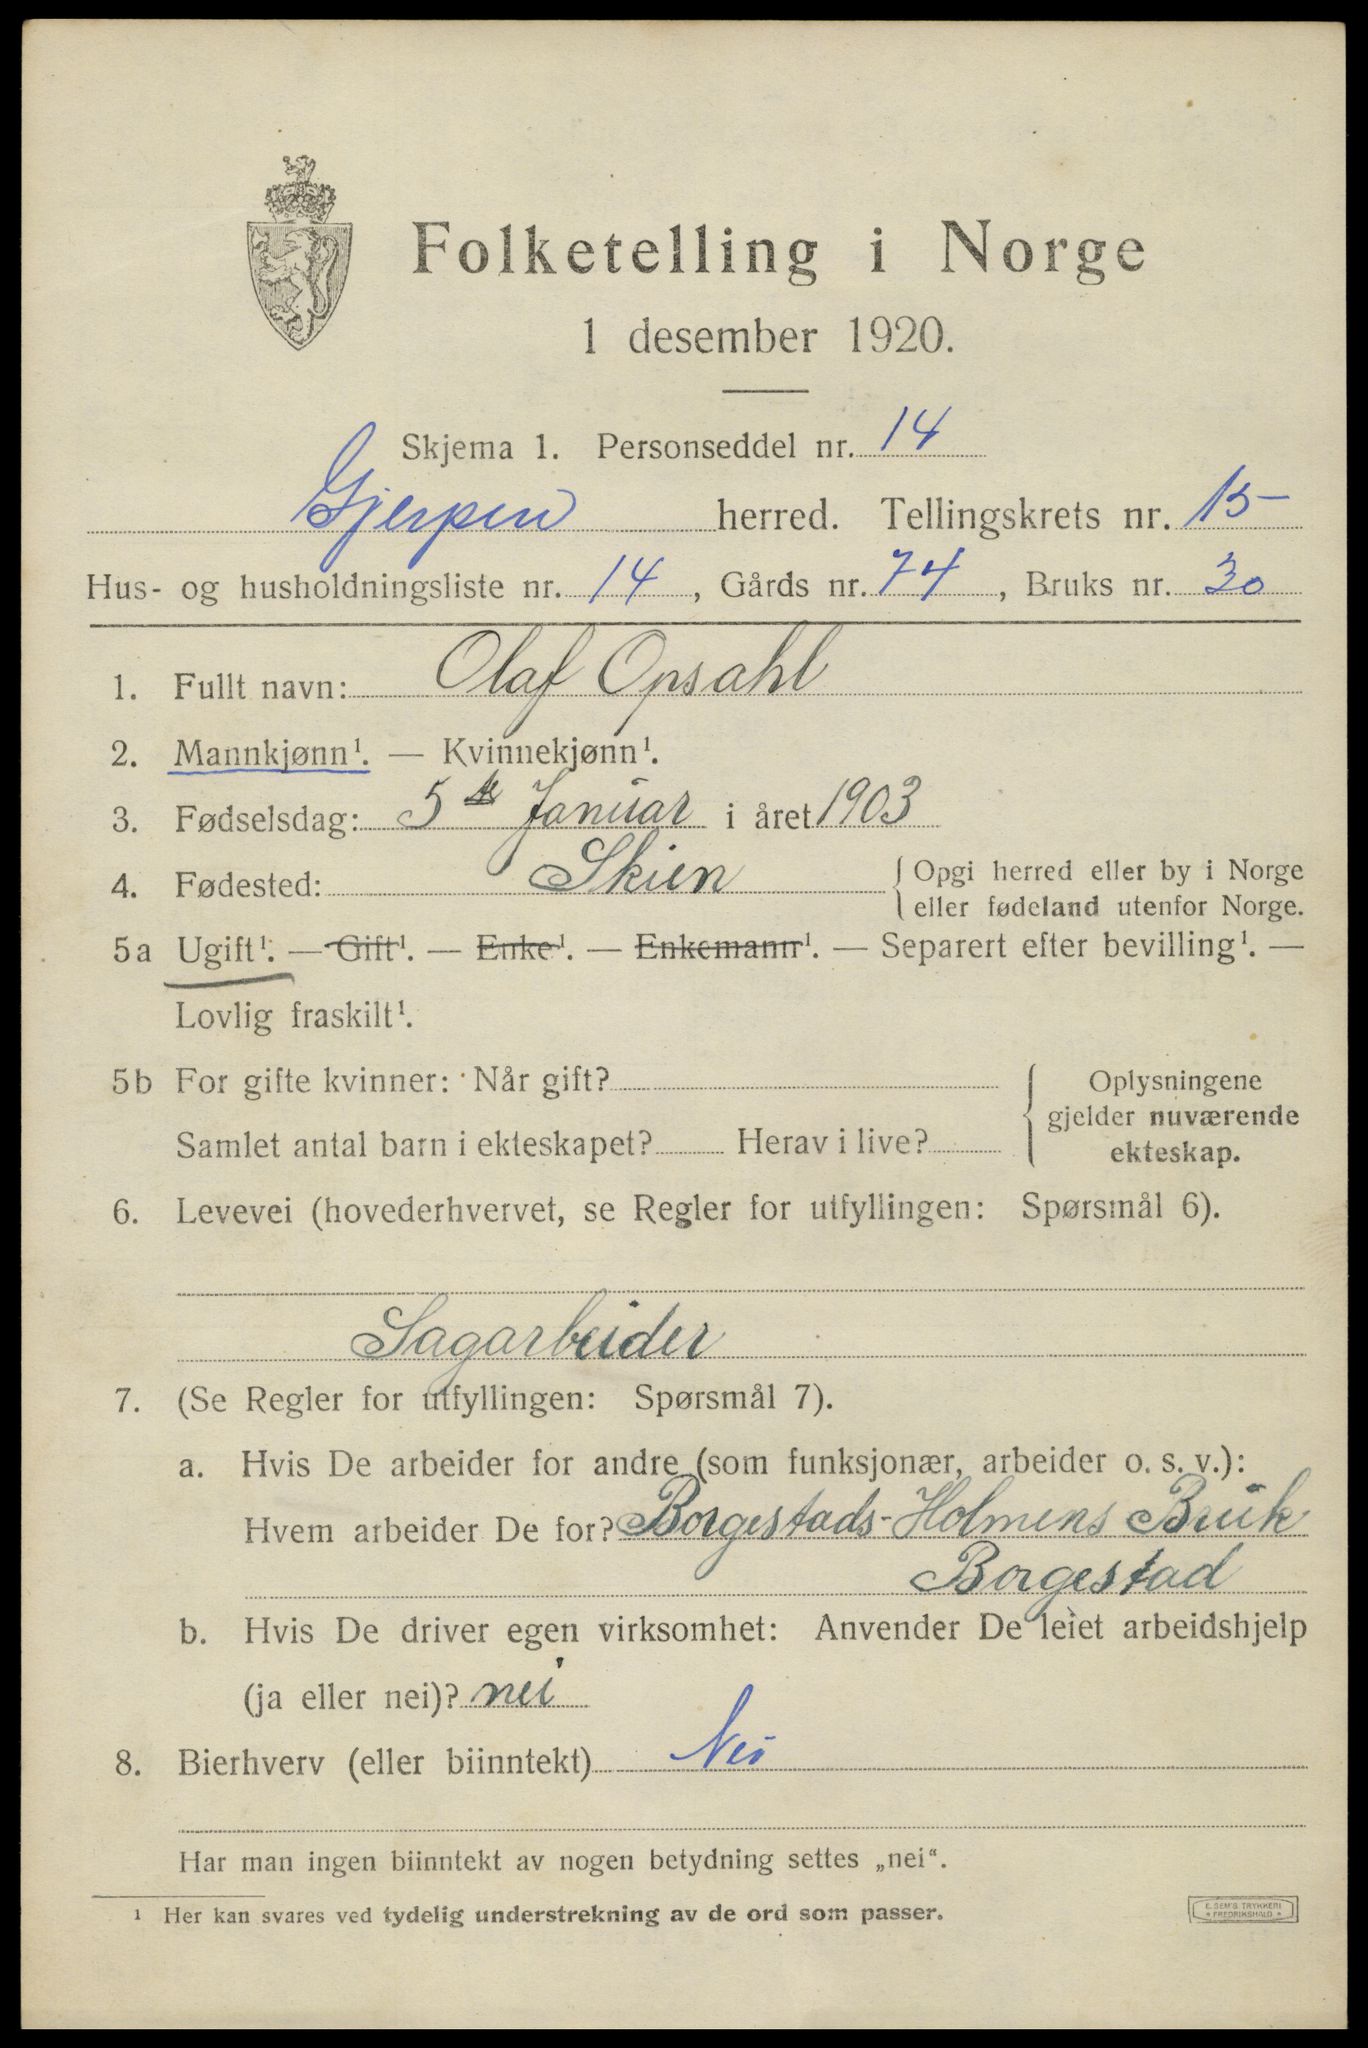 Folketelling i Norge
1 desember 1920.
Skjema 1. Personseddel nr. 14
Gjerpen herred. Tellingskrets nr. 15
Hus- og husholdningsliste nr. 14, Gårds nr. 74, Bruks nr. 30
1. Fullt navn: Olaf Opsahl
2. Mannkjønn¹. — Kvinnekjønn¹.
3. Fødselsdag: 5te Januar i året 1903
4. Fødested: Skien { Opgi herred eller by i Norge
eller fødeland utenfor Norge.
5a Ugift¹. — Gift¹. — Enke¹. — Enkemann¹. — Separert efter bevilling¹. —
Lovlig fraskilt¹.
5b For gifte kvinner: Når gift? { Oplysningene
gjelder nuværende
Samlet antal barn i ekteskapet? Herav i live? ekteskap.
6. Levevei (hovederhvervet, se Regler for utfyllingen: Spørsmål 6).
Sagarbeider
7. (Se Regler for utfyllingen: Spørsmål 7).
a. Hvis De arbeider for andre (som funksjonær, arbeider o. s. v.):
Hvem arbeider De for? Borgestads-Holmens Bruk
Borgestad
b. Hvis De driver egen virksomhet: Anvender De leiet arbeidshjelp
(ja eller nei)? nei
8. Bierhverv (eller biinntekt) Nei
Har man ingen biinntekt av nogen betydning settes „nei“.
¹ Her kan svares ved tydelig understrekning av de ord som passer.
E. SEM'S TRYKKERI
* FREDRIKSHALD *